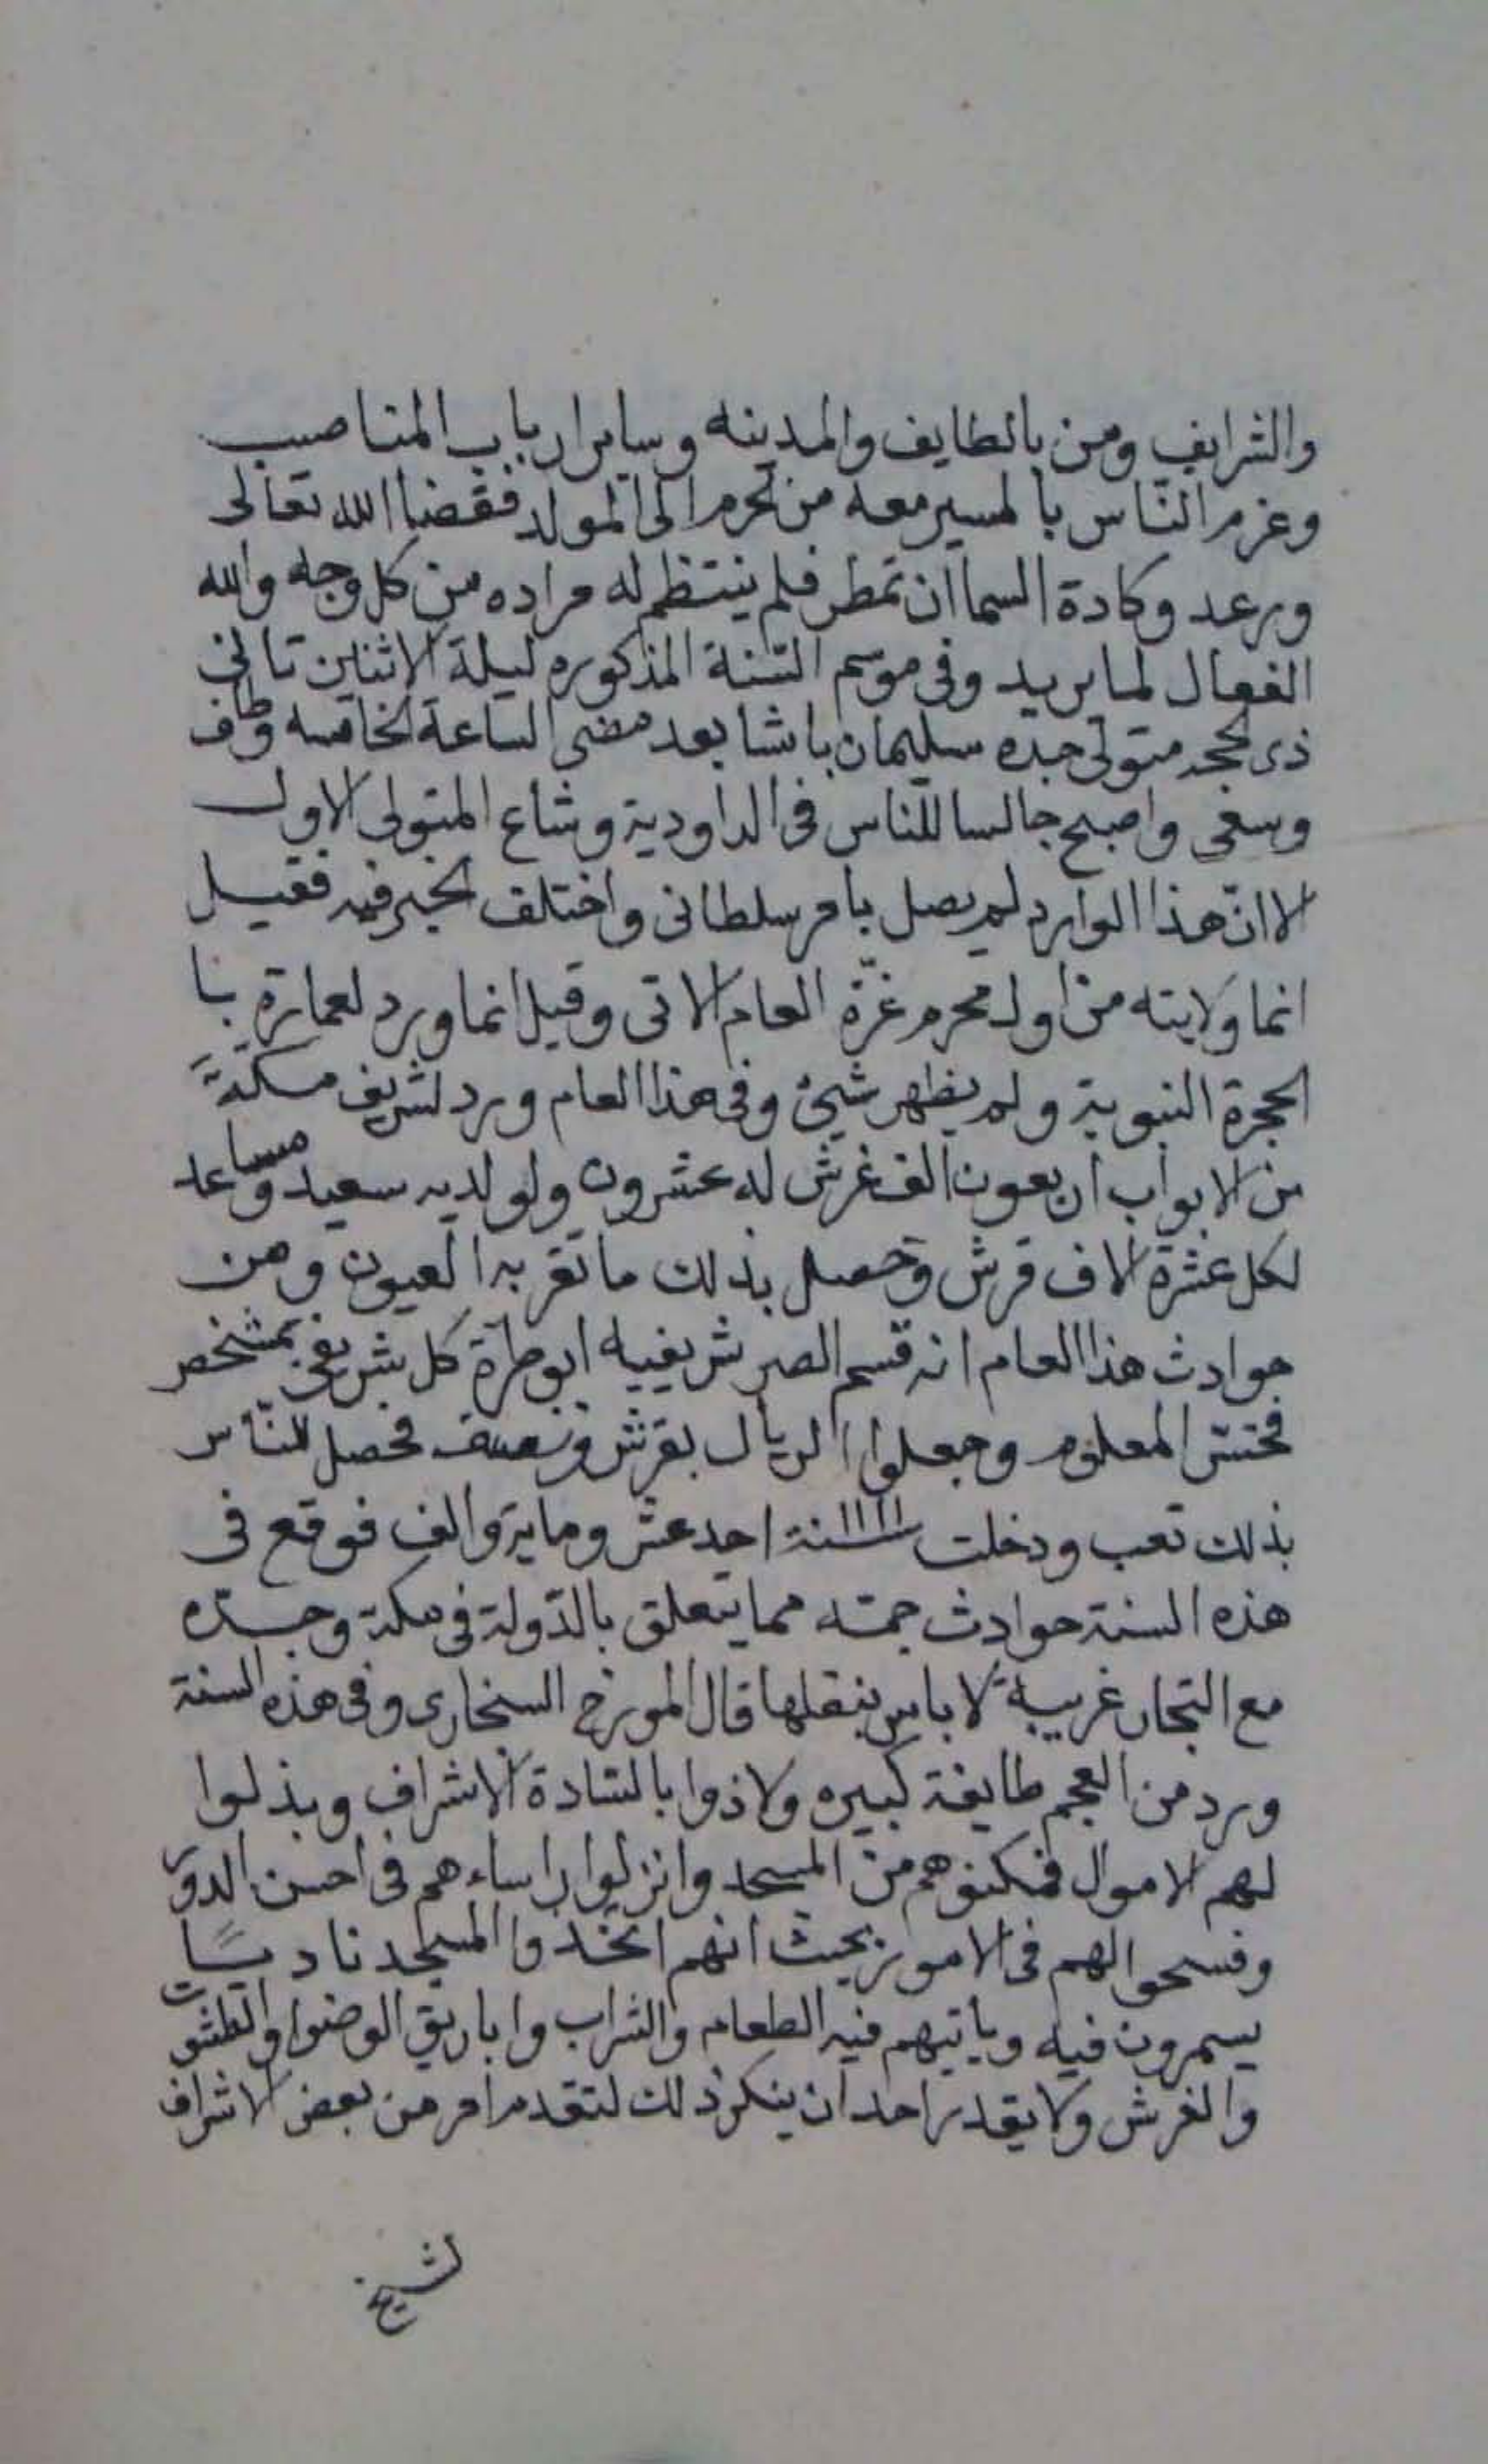 والشرايف ومن بالطايف والمدينه وساير ارباب المناصب
وعزم الناس بالمسير معه من لحرم الى المولد فقضا الله تعالى
ورعد وكادة السما ان تمطر فلم ينتظم له مراده من كل وجه والله
الفعال لما يريد وفى موسم السنة المذكوره ليلة الاثنين تانى
ذى لحجه متولى جده سليمان باشا بعد مضى الساعة الخامسه وطاف
وسعى واصبح جالسا للناس فى الداودية وشاع المتولى الاول
الا ان هذا الوارد لم يصل بامر سلطانى واختلف الخبر فيه فقيل
انما ولايته من اول محرم غرّة العام الاتى وقيل انما ورد لعمارة با
الحجرة النبوية ولم يظهر شيئ وفى هذا العام ورد لشريف مكة
من الابواب اربعون الف غرش له عشرون ولولديه سعيد ومساعد
لكل عشرة الاف قرش وحصل بذلك ما تقر به العيون ومن
حوادث هذا العام انه قسم الصر شريفيه ابو طرة كل شريفى بمشخص
المعلوم وجعلوا الريال بقرش ونصف فحصل للناس
بذلك تعب ودخلت سنة ١١١١ احد عشر وماية والف فوقع فى
هذه السنة حوادث جمته مما يتعلق بالدّولة فى مكة وجدّه
مع التجار غريبة لا باس بنقلها قال المورخ السنجارى وفى هذه السنة
ورد من العجم طايفة كبيره ولاذوا بالسّادة الاشراف وبذلوا
لهم الاموال فمكنوهم من المسجد وانزلوا راساءهم فى احسن الدور
وفسحوا لهم فى الامور بحيث انهم اتخذوا المسجد ناديًا
يسمرون فيه وياتيهم فيه الطعام والشراب واباريق الوضوا والطشوت
والفرش ولا يقدر احد ان ينكر ذلك لتقدم امر من بعض الاشراف
لشيخ